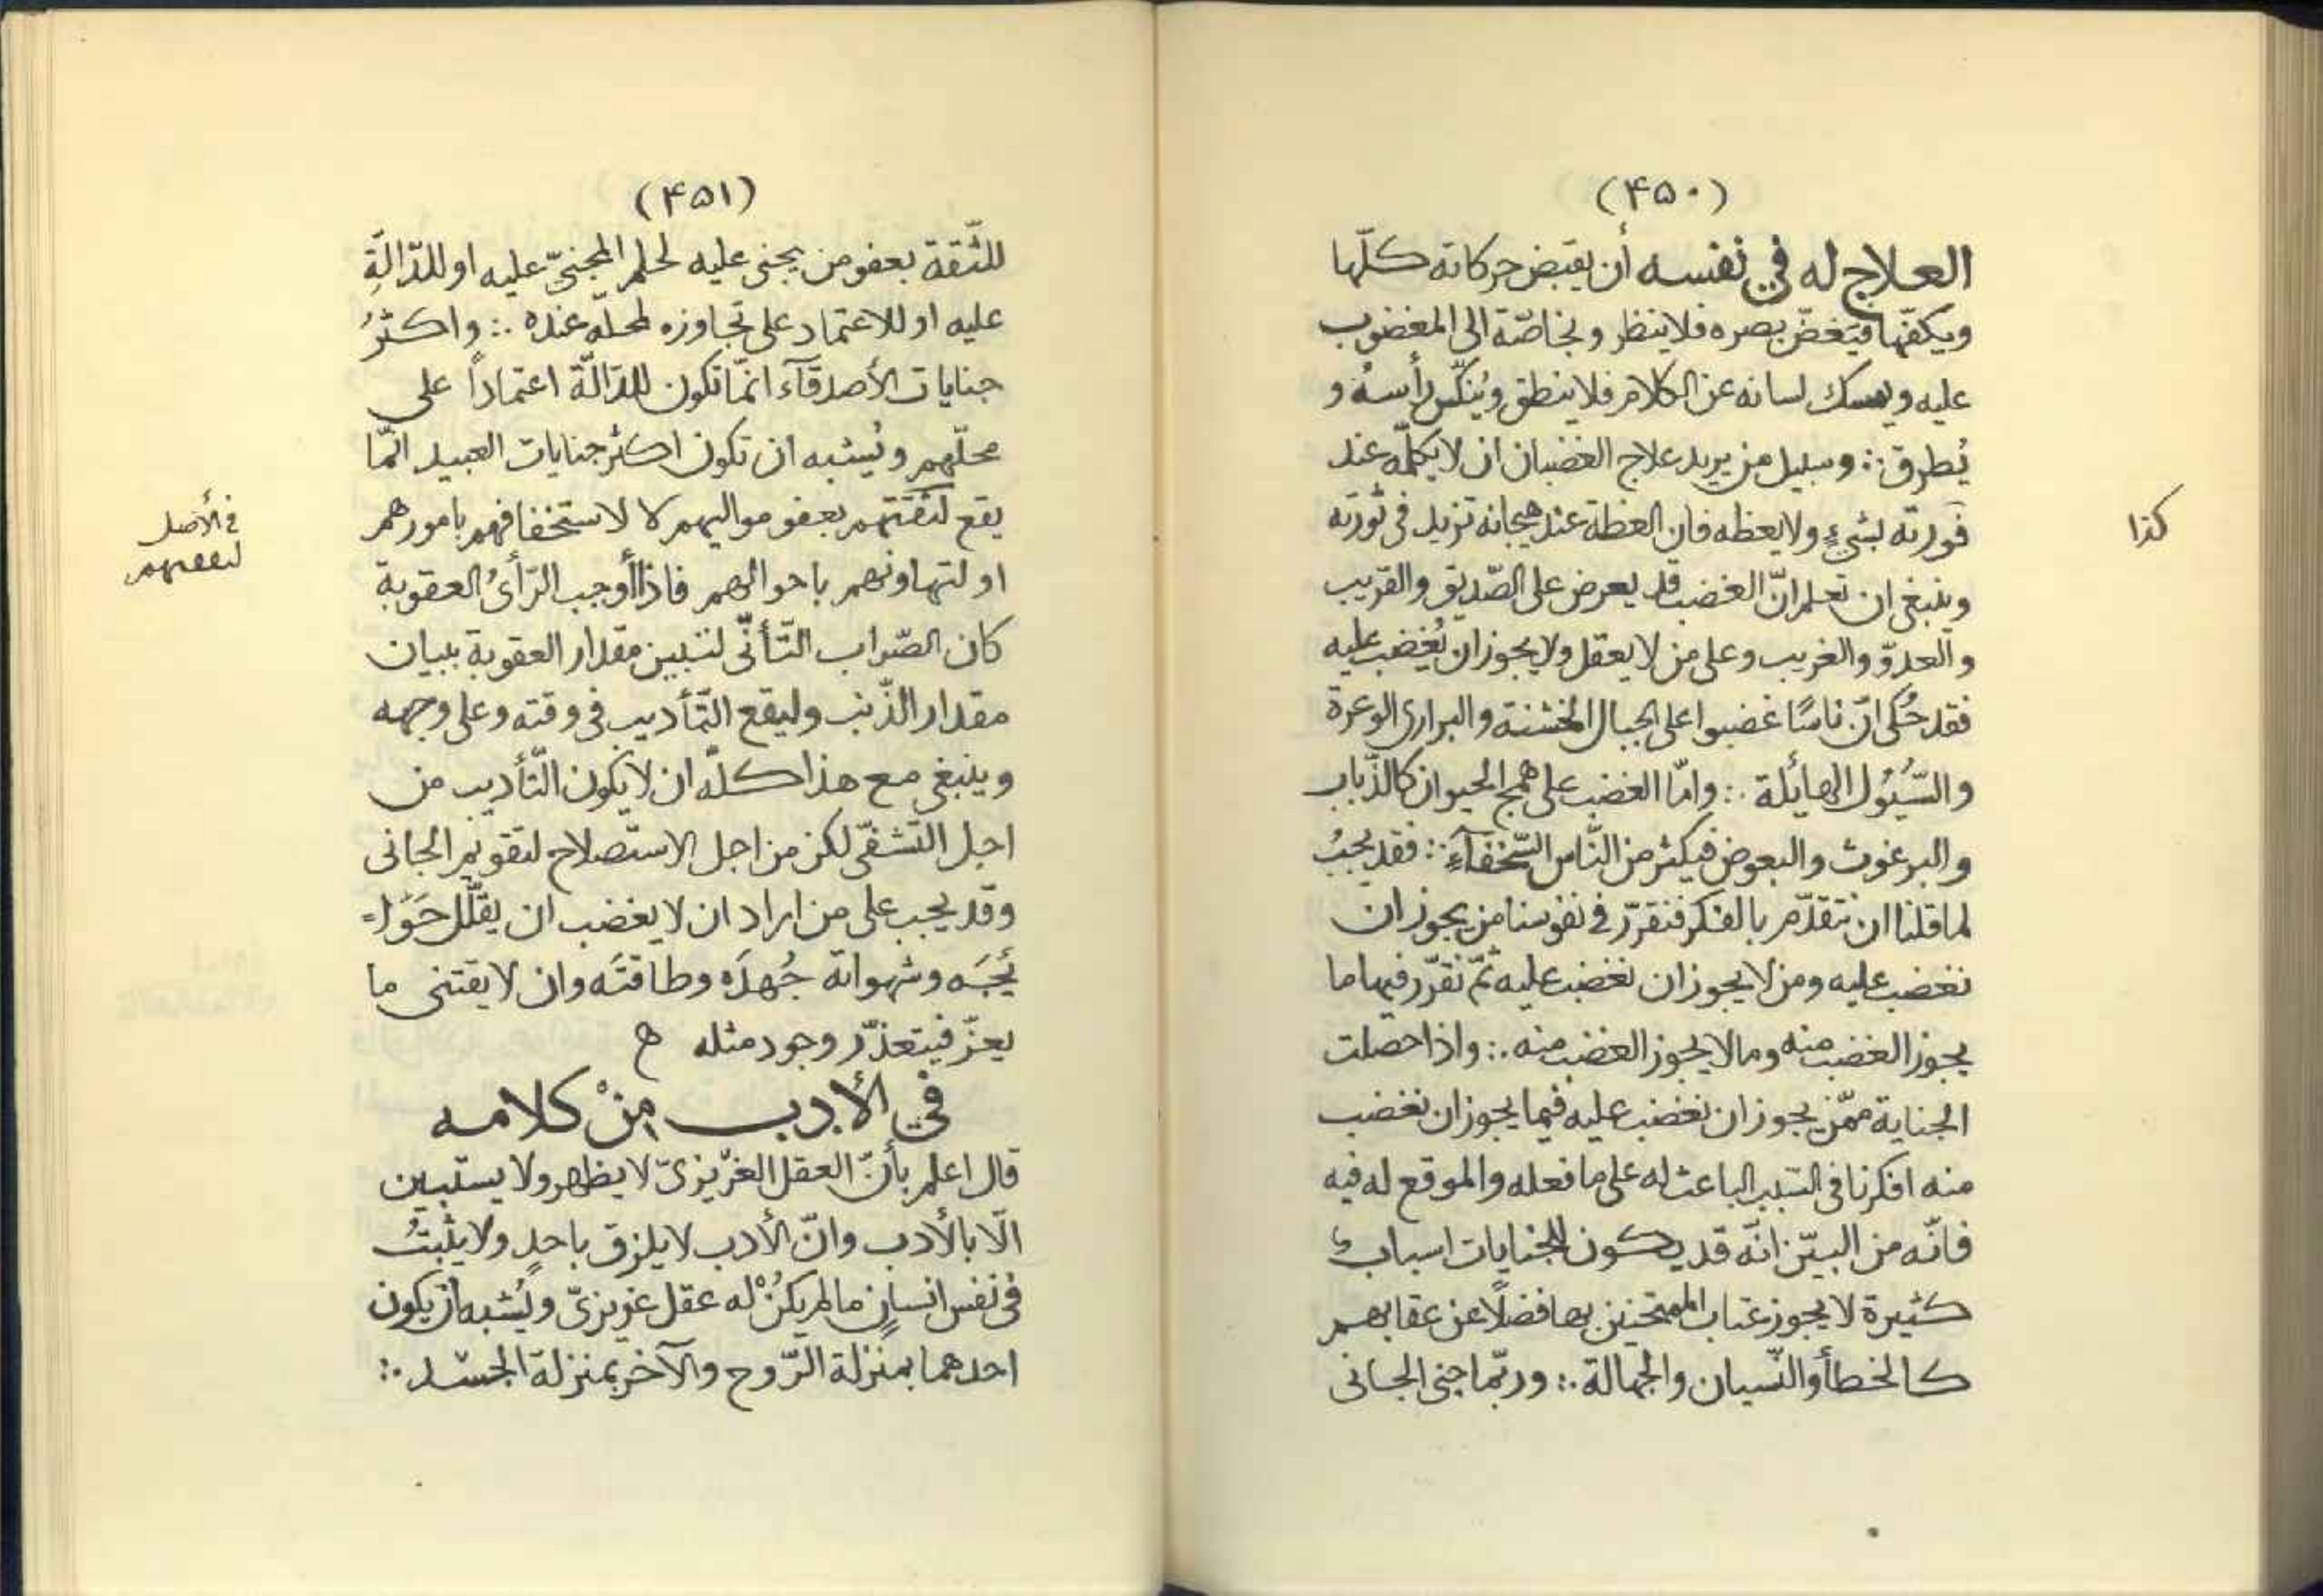 (۴۵۰)
العلاج له في نفسه أن يقبض حركاته كلّها
ويكفّها فيغضّ بصره فلا ينظر وبخاصّة الى المغضوب
عليه ويمسك لسانه عن الكلام فلا ينطق ويُنكّس رأسهُ و
يُطرق ∴ وسبيل من يريد علاج الغضبان ان لا يكلّمه عند
فورته بشيءٍ ولا يعظه فان العظة عند هيجانه تزيد في ثورته
كذا
وينبغي ان تعلم انّ الغضب قد يعرض على الصّديق والقريب
والعدوّ والغريب وعلى من لا يعقل ولا يجوز ان يُغضب عليه
فقد حُكى انّ ناسًا غضبوا على الجبال الخشنة والبرارى الوعرة
والسُّيُول الهائلة ∴ وامّا الغضب على همج الحيوان كالذّباب
والبرغوث والبعوض فيكثر من النّاس السّخفآءِ ∴ فقد يجبُ
لما قلنا ان نتقدّم بالفكر فنقرّر في نفوسنا من يجوز ان
نغضب عليه ومن لا يجوز ان نغضب عليه ثمّ نقرّر فيها ما
يجوز الغضب منه وما لا يجوز الغضب منه ∴ واذا حصلت
الجناية ممّن يجوز ان نغضب عليه فيما يجوز ان نغضب
منه افكرنا في السّبب الباعث له على ما فعله والموقع له فيه
فانّه من البيّن انّه قد يكون للجنايات اسباب
كثيرة لا يجوز عتاب الممتحنين بها فضلًا عن عقابهم
كالخطأ والنّسيان والجهالة ∴ وربّما جنى الجانى
(۴۵۱)
للثّقة بعفو من يجنى عليه لحلم المجنيّ عليه او للدّالّةِ
عليه او للاعتماد على تجاوزه لمحلّه عنده ∴ واكثرُ
جنايات الأصدقآء انّما تكون للدّالّة اعتماداً على
محلّهم ويُشبه ان تكون اكثر جنايات العبيد انّما
يقع لثقتهم بعفو مواليهم لا لاستخفافهم بامورهم
في الأصل
او لتهاونهم باحوالهم فاذا أوجب الرّأىُ العقوبة
كان الصّواب التّأنّى لتبيين مقدار العقوبة ببيان
مقدار الذّنب وليقع التّأديب في وقته وعلى وجهه
وينبغي مع هذا كلّه ان لا يكون التّأديب من
اجل التّشفّى لكن من اجل الاستصلاح لتقويم الجانى
وقد يجب على من اراد ان لا يغضب ان يقلّل حَوَا=
ئجَه وشهواته جُهدَه وطاقتَه وان لا يقتنى ما
يعزّ فيتعذّر وجود مثله ه
في الأدب مِنْ كلامه
قال اعلم بأنّ العقل الغريزىّ لا يظهر ولا يستبين
الّا بالأدب وانّ الأدب لا يلزق باحدٍ ولا يثبتُ
في نفس انسانٍ ما لم يكنْ له عقل غريزىّ ويُشبه ان يكون
احدهما بمنزلة الرّوح والآخر بمنزلة الجسد ∴